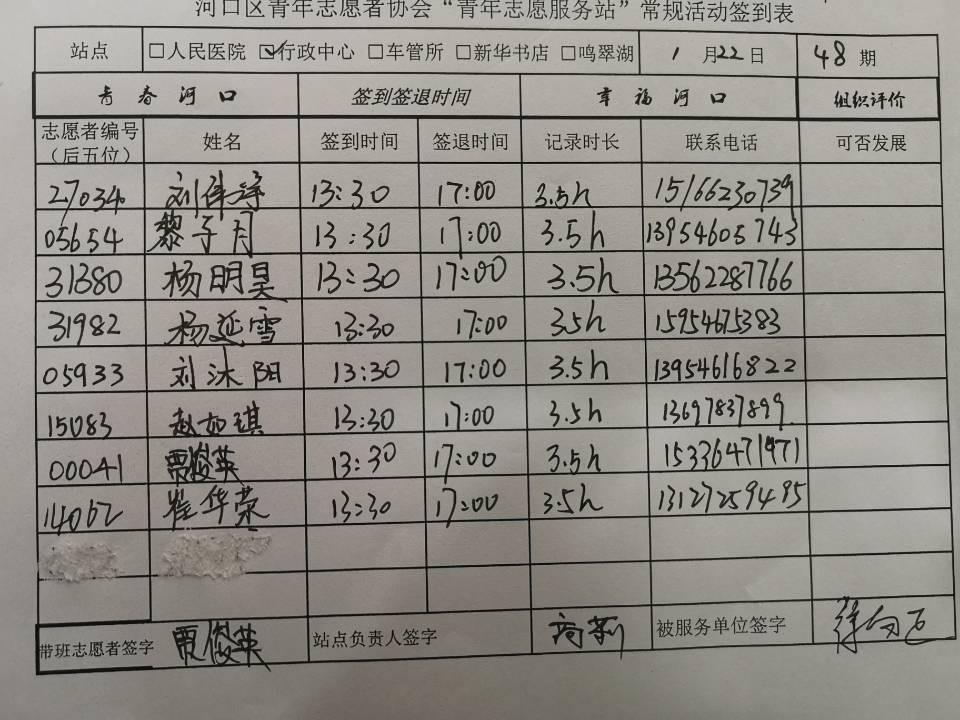 河口区青年志愿者协会“青年志愿服务站”常规活动签到表
站点 □人民医院 ☑行政中心 □车管所 □新华书店 □鸣翠湖 1月22日 48期
青春河口 签到签退时间 幸福河口 组织评价
志愿者编号 姓名 签到时间 签退时间 记录时长 联系电话 可否发展
（后五位）
27034 刘伟 13:30 17:00 3.5h 15166230739
05654 黎子月 13:30 17:00 3.5h 13954605743
31380 杨明昊 13:30 17:00 3.5h 13562287766
31982 杨延雪 13:30 17:00 3.5h 15954675383
05933 刘沐阳 13:30 17:00 3.5h 13954616822
15083 赵如琪 13:30 17:00 3.5h 13697837899
00041 贾俊英 13:30 17:00 3.5h 15336471971
14062 崔华荣 13:30 17:00 3.5h 13127259495
带班志愿者签字 贾俊英 站点负责人签字 被服务单位签字